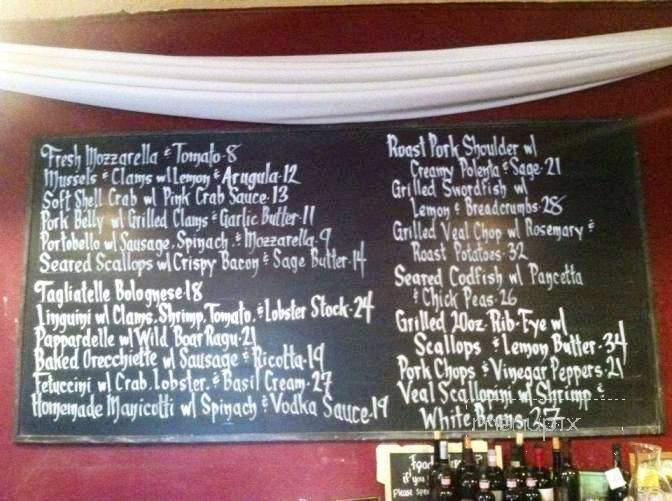 Fresh Mozzarella & Tomato-8
Mussels & Clams w/ Lemon & Arugula-12
Soft Shell Crab w/ Pink Crab Sauce-13
Pork Belly w/ Grilled Clams & Garlic Butter-11
Portobello w/ Sausage, Spinach, & Mozzarella-9
Seared Scallops w/ Crispy Bacon & Sage Butter-14
Tagliatelle Bolognese-18
Linguini w/ Clams, Shrimp, Tomato, & Lobster Stock-24
Pappardelle w/ Wild Boar Ragu-21
Baked Orecchiette w/ Sausage & Ricotta-19
Fetuccini w/ Crab, Lobster, & Basil Cream-27
Homemade Manicotti w/ Spinach & Vodka Sauce-19
Roast Pork Shoulder w/
Creamy Polenta & Sage-21
Grilled Swordfish w/
Lemon & Breadcrumbs-28
Grilled Veal Chop w/ Rosemary &
Roast Potatoes-32
Seared Codfish w/ Pancetta
& Chick Peas-26
Grilled 20oz. Rib-Eye w/
Scallops & Lemon Butter-34
Pork Chops & Vinegar Peppers-21
Veal Scallopini w/ Shrimp &
White Beans-27
menupix
Food
if you
Please